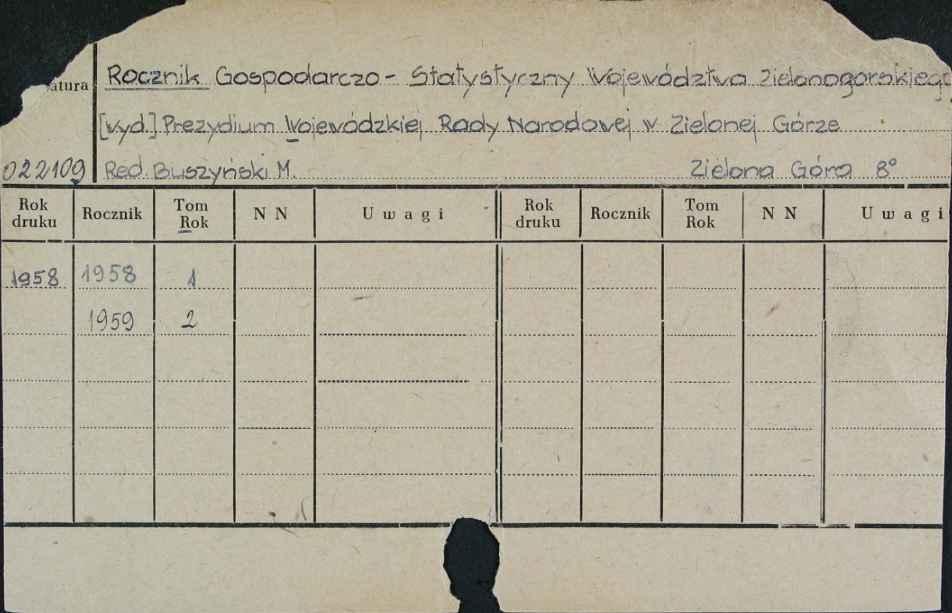 Rocznik Gospodarczo - Statystyczny Województwa Zielonogórskiego
atura
[wyd.] Prezydium Wojewódzkiej Rady Narodowej w Zielonej Górze
022109 Red. Buszyński M. Zielona Góra 8°
Rok druku Rocznik Tom Rok N N Uwagi Rok druku Rocznik Tom Rok N N Uwagi
1958 1958 1
1959 2